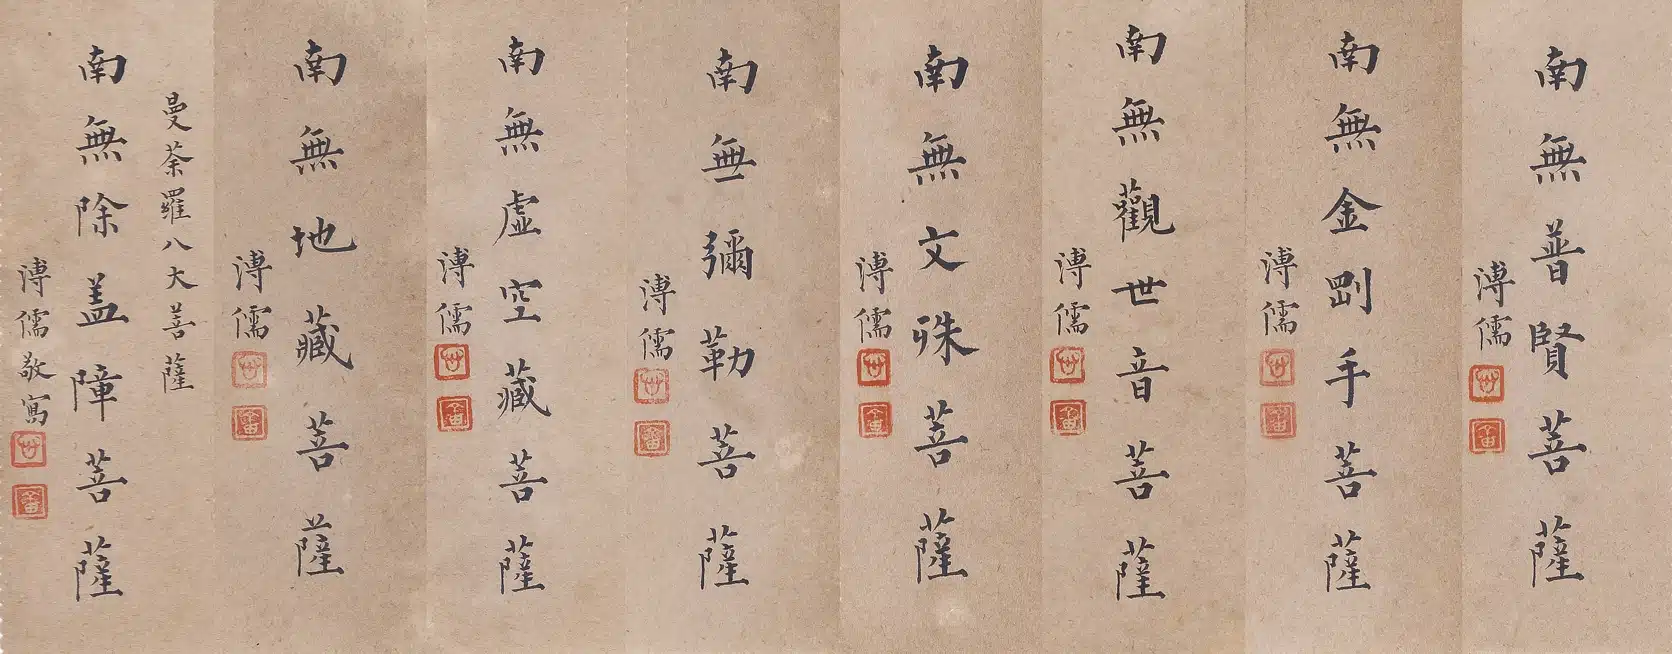 南無普賢菩薩
溥儒
南無金剛手菩薩
溥儒
南無觀世音菩薩
溥儒
南無文殊菩薩
溥儒
南無彌勒菩薩
溥儒
南無虛空藏菩薩
溥儒
南無地藏菩薩
溥儒
曼荼羅八大菩薩
南無除盖障菩薩
溥儒敬寫